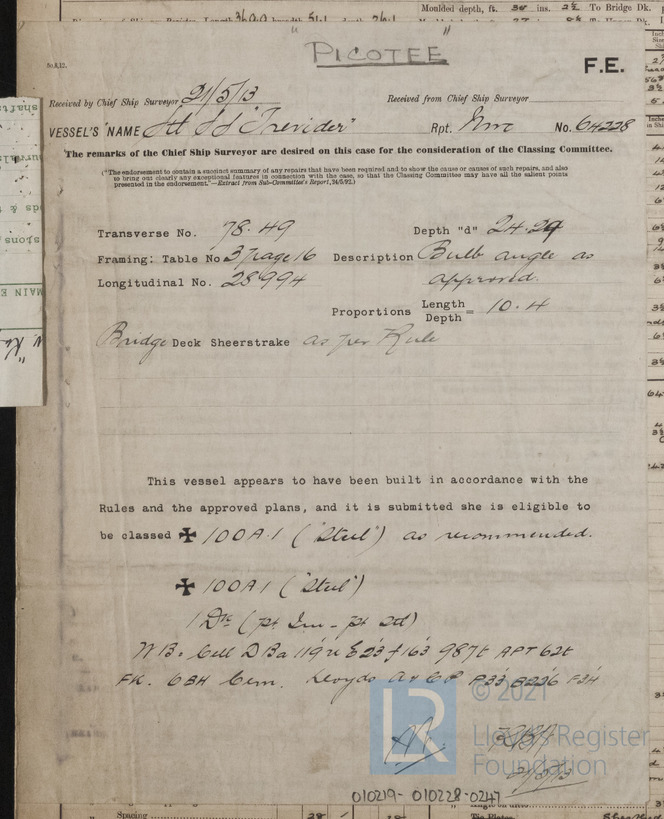 Moulded depth, ft. 30 ins. 2½ To Bridge Dk.
"PICOTEE"
F.E.
Received by Chief Ship Surveyor 21/5/13
Received from Chief Ship Surveyor
VESSEL'S NAME St SS "Trevider" Rpt. Nwc No. 64228
The remarks of the Chief Ship Surveyor are desired on this case for the consideration of the Classing Committee.
("The endorsement to contain a succinct summary of any repairs that have been required and to show the cause or causes of such repairs, and also
to bring out clearly any exceptional features in connection with the case, so that the Classing Committee may have all the salient points
presented in the endorsement."—Extract from Sub-Committee's Report, 24/5/92.)
Transverse No. 78.49 Depth "d" 24.29
Framing: Table No 3 page 16 Description Bulb angle as
Longitudinal No. 28994 approved.
Proportions Length/Depth = 10.4
Bridge Deck Sheerstrake as per Rule
This vessel appears to have been built in accordance with the
Rules and the approved plans, and it is submitted she is eligible to
be classed ✠ 100A.1 ("Steel") as recommended.
✠ 100A1 ("Steel")
1 Dk (pt Irn - pt Stl)
WB: Cell D Ba 119' u E 23' f 163' 987t APT 62t
FK. 6BH Cem. Lloyds A & CP P33 B226 F34
© 2021
LR
Lloyd's Register
Foundation
21/5/13
010219-010228-0247
Spacing